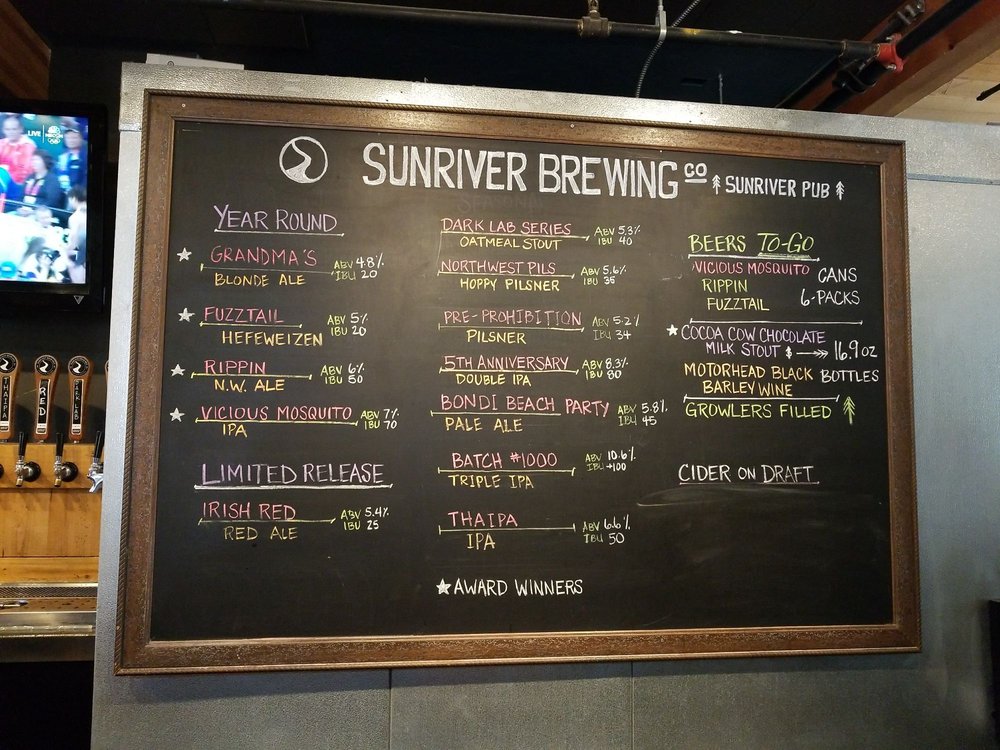 SUNRIVER BREWING CO SUNRIVER PUB
YEAR ROUND
GRANDMA'S ABV 4.8%
BLONDE ALE IBU 20
FUZZTAIL ABV 5%
HEFEWEIZEN IBU 20
RIPPIN ABV 6%
N.W. ALE IBU 50
VICIOUS MOSQUITO ABV 7%
IPA IBU 70
LIMITED RELEASE
IRISH RED ABV 5.4%
RED ALE IBU 25
DARK LAB SERIES ABV 5.3%
OATMEAL STOUT IBU 40
NORTHWEST PILS ABV 5.6%
HOPPY PILSNER IBU 35
PRE-PROHIBITION ABV 5.2%
PILSNER IBU 34
5TH ANNIVERSARY ABV 8.3%
DOUBLE IPA IBU 80
BONDI BEACH PARTY ABV 5.8%
PALE ALE IBU 45
BATCH #1000 ABV 10.6%
TRIPLE IPA IBU +100
THAIPA ABV 6.6%
IPA IBU 50
AWARD WINNERS
BEERS TO-GO
VICIOUS MOSQUITO CANS
RIPPIN 6-PACKS
FUZZTAIL
COCOA COW CHOCOLATE
MILK STOUT $ 16.9 OZ
MOTORHEAD BLACK BOTTLES
BARLEY WINE
GROWLERS FILLED
CIDER ON DRAFT
LIVE
THAIPA
RED
DARK LAB